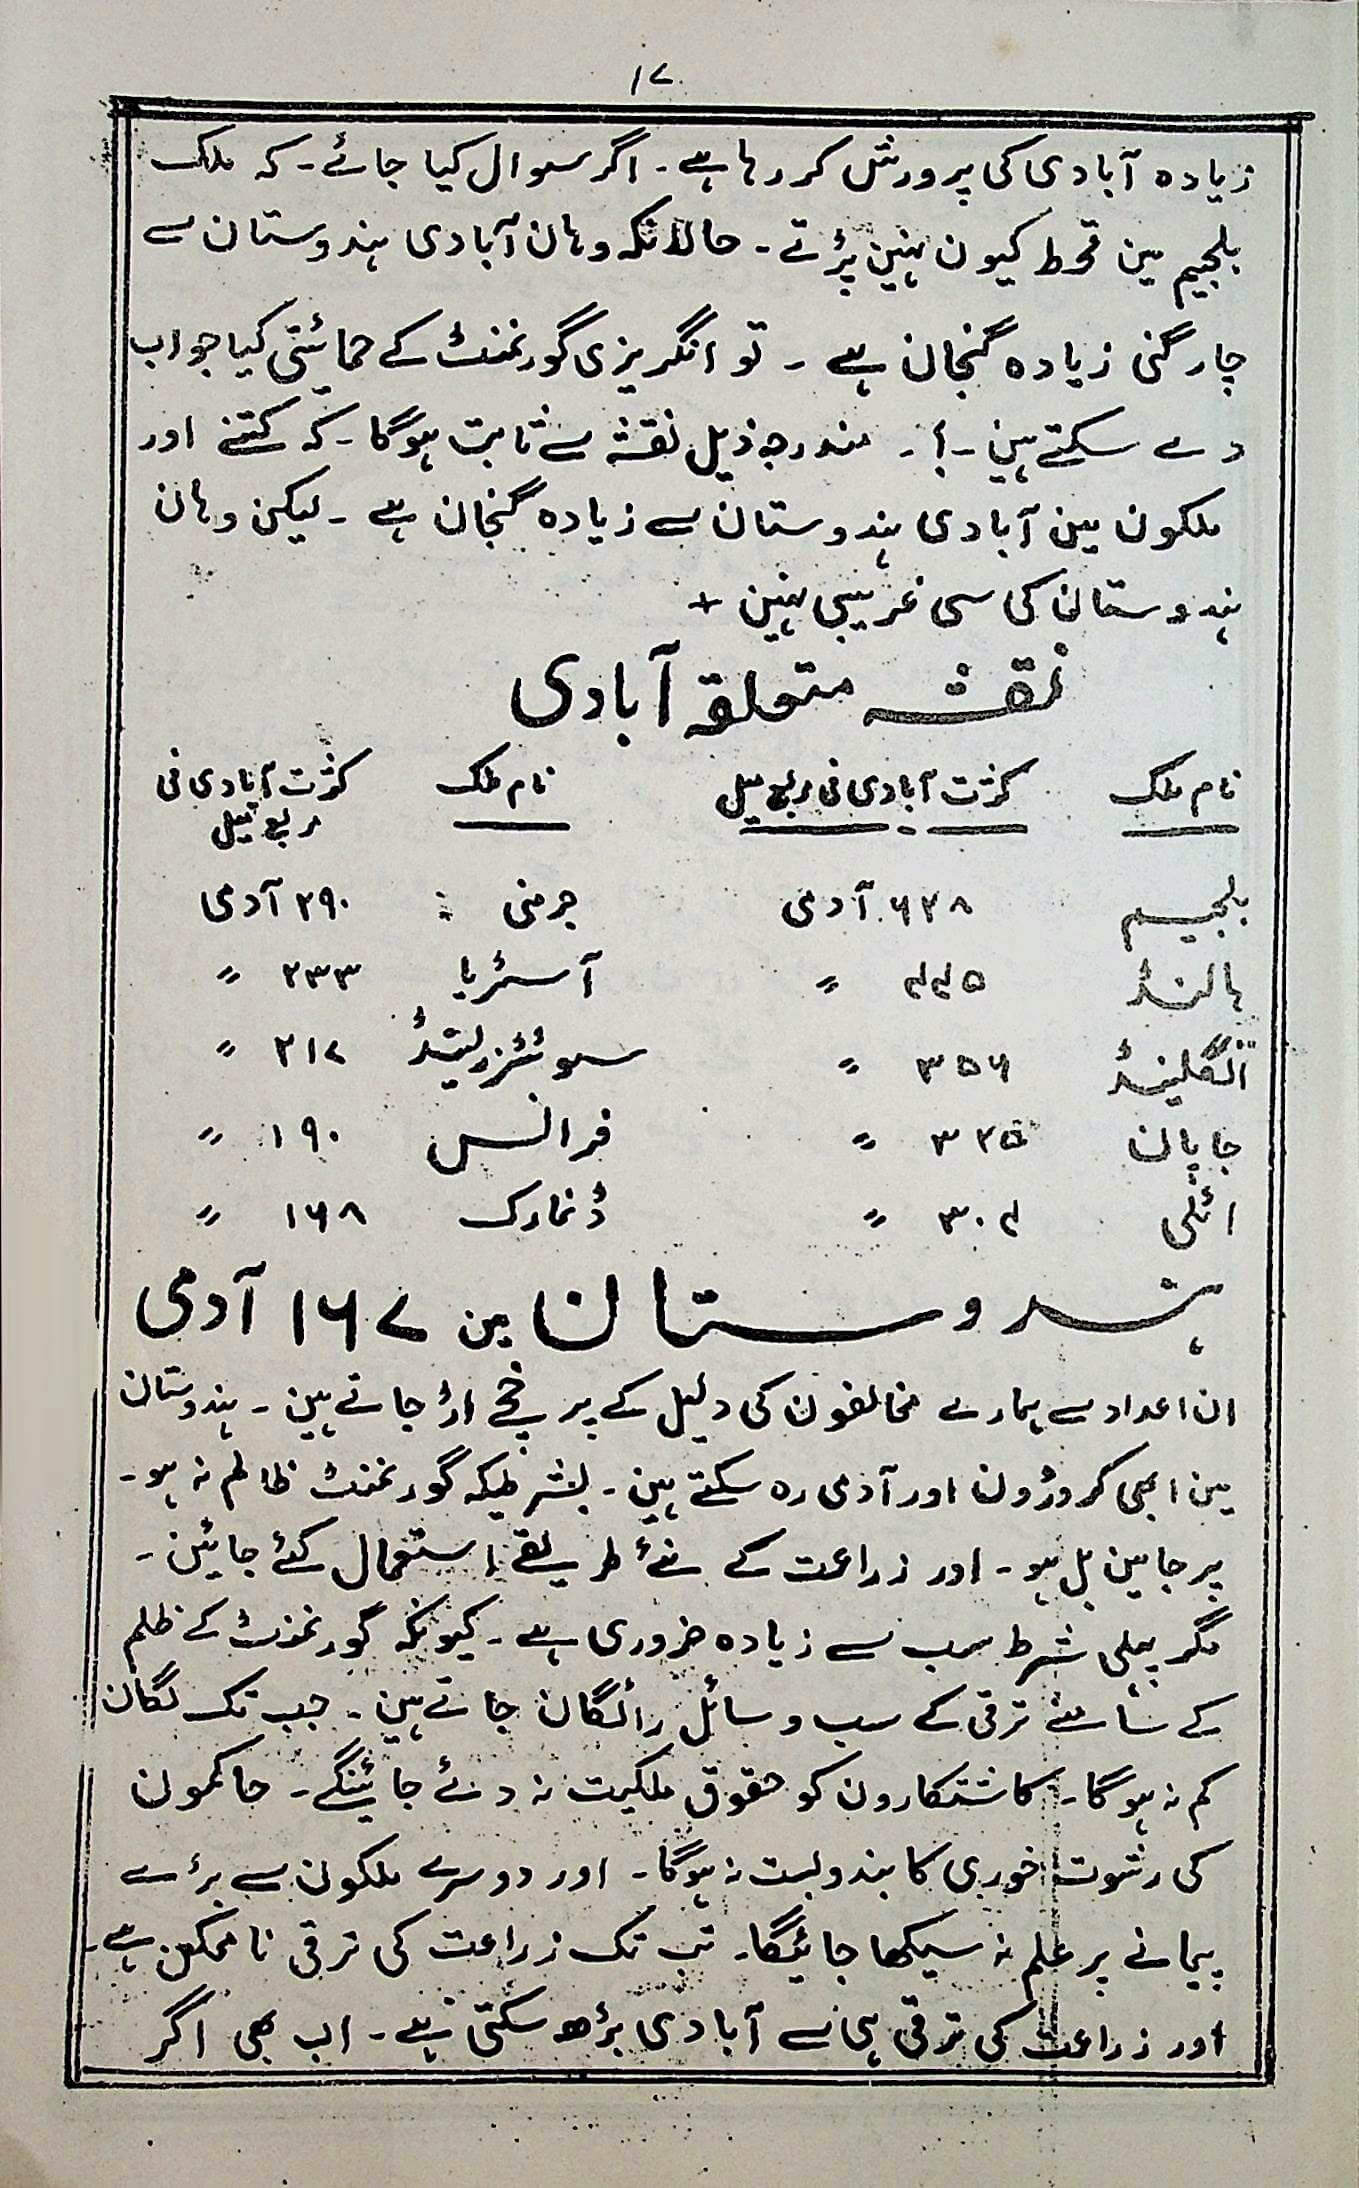 ۱۷
زیادہ آبادی کی پرورش کر رہا ہے۔ اگر سوال کیا جائے۔ کہ ملک
بلجیم مین قحط کیون نہین پڑتے۔ حالانکہ وہان آبادی ہندوستان سے
چار گنی زیادہ گنجان ہے ۔ تو انگریزی گورنمنٹ کے حمائیتی کیا جواب
دے سکتے ہین۔؟۔ مندرجہ ذیل نقشہ سے ثابت ہوگا۔ کہ کتنے اور
ملکون مین آبادی ہندوستان سے زیادہ گنجان ہے ۔ لیکن وہان
ہندوستان کی سی غریبی نہین +
نقشہ متعلقہ آبادی
نام ملک کثرت آبادی فی مربع میل نام ملک کثرت آبادی فی
مربع میل
بلجیم ۶۲۸ آدمی جرمنی : ۲۹۰ آدمی
ہالنڈ ۴۴۵〃 آسٹریا ۲۳۳〃
انگلینڈ ۳۵۶〃 سوئٹزرلینڈ ۲۱۷〃
جاپان ۳۲۵〃 فرانس ۱۹۰〃
اٹلی ۳۰۴〃 ڈنمارک ۱۶۸〃
ہندوستان مین ۱۶۷ آدمی
ان اعداد سے ہمارے مخالفون کی دلیل کے پرخچے اڑ جاتے ہین۔ ہندوستان
مین ابھی کروڑون اور آدمی رہ سکتے ہین۔ بشرطیکہ گورنمنٹ ظالم نہ ہو۔
پرجا مین بل ہو۔ اور زراعت کے نئے طریقے استعمال کئے جائین۔
مگر پہلی شرط سب سے زیادہ ضروری ہے۔ کیونکہ گورنمنٹ کے ظلم
کے سامنے ترقی کے سب وسائل رائگان جاتے ہین۔ جب تک لگان
کم نہ ہوگا۔ کاشتکارون کو حقوق ملکیت نہ دئے جائینگے۔ حاکمون
کی رشوت خوری کا بندوبست نہ ہوگا۔ اور دوسرے ملکون سے بڑے
پیمانے پر علم نہ سیکھا جائیگا۔ تب تک زراعت کی ترقی ناممکن ہے۔
اور زراعت کی ترقی ہی سے آبادی بڑھ سکتی ہے۔ اب بھی اگر